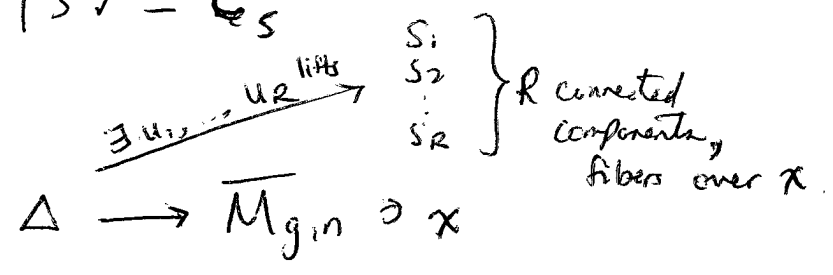 ∃ u₁, ..., u_R lifts
S₁
S₂
⋮
S_R
} R connected
components,
fibers over x
Δ ⟶ \overline{M}_{g,n} ∋ x